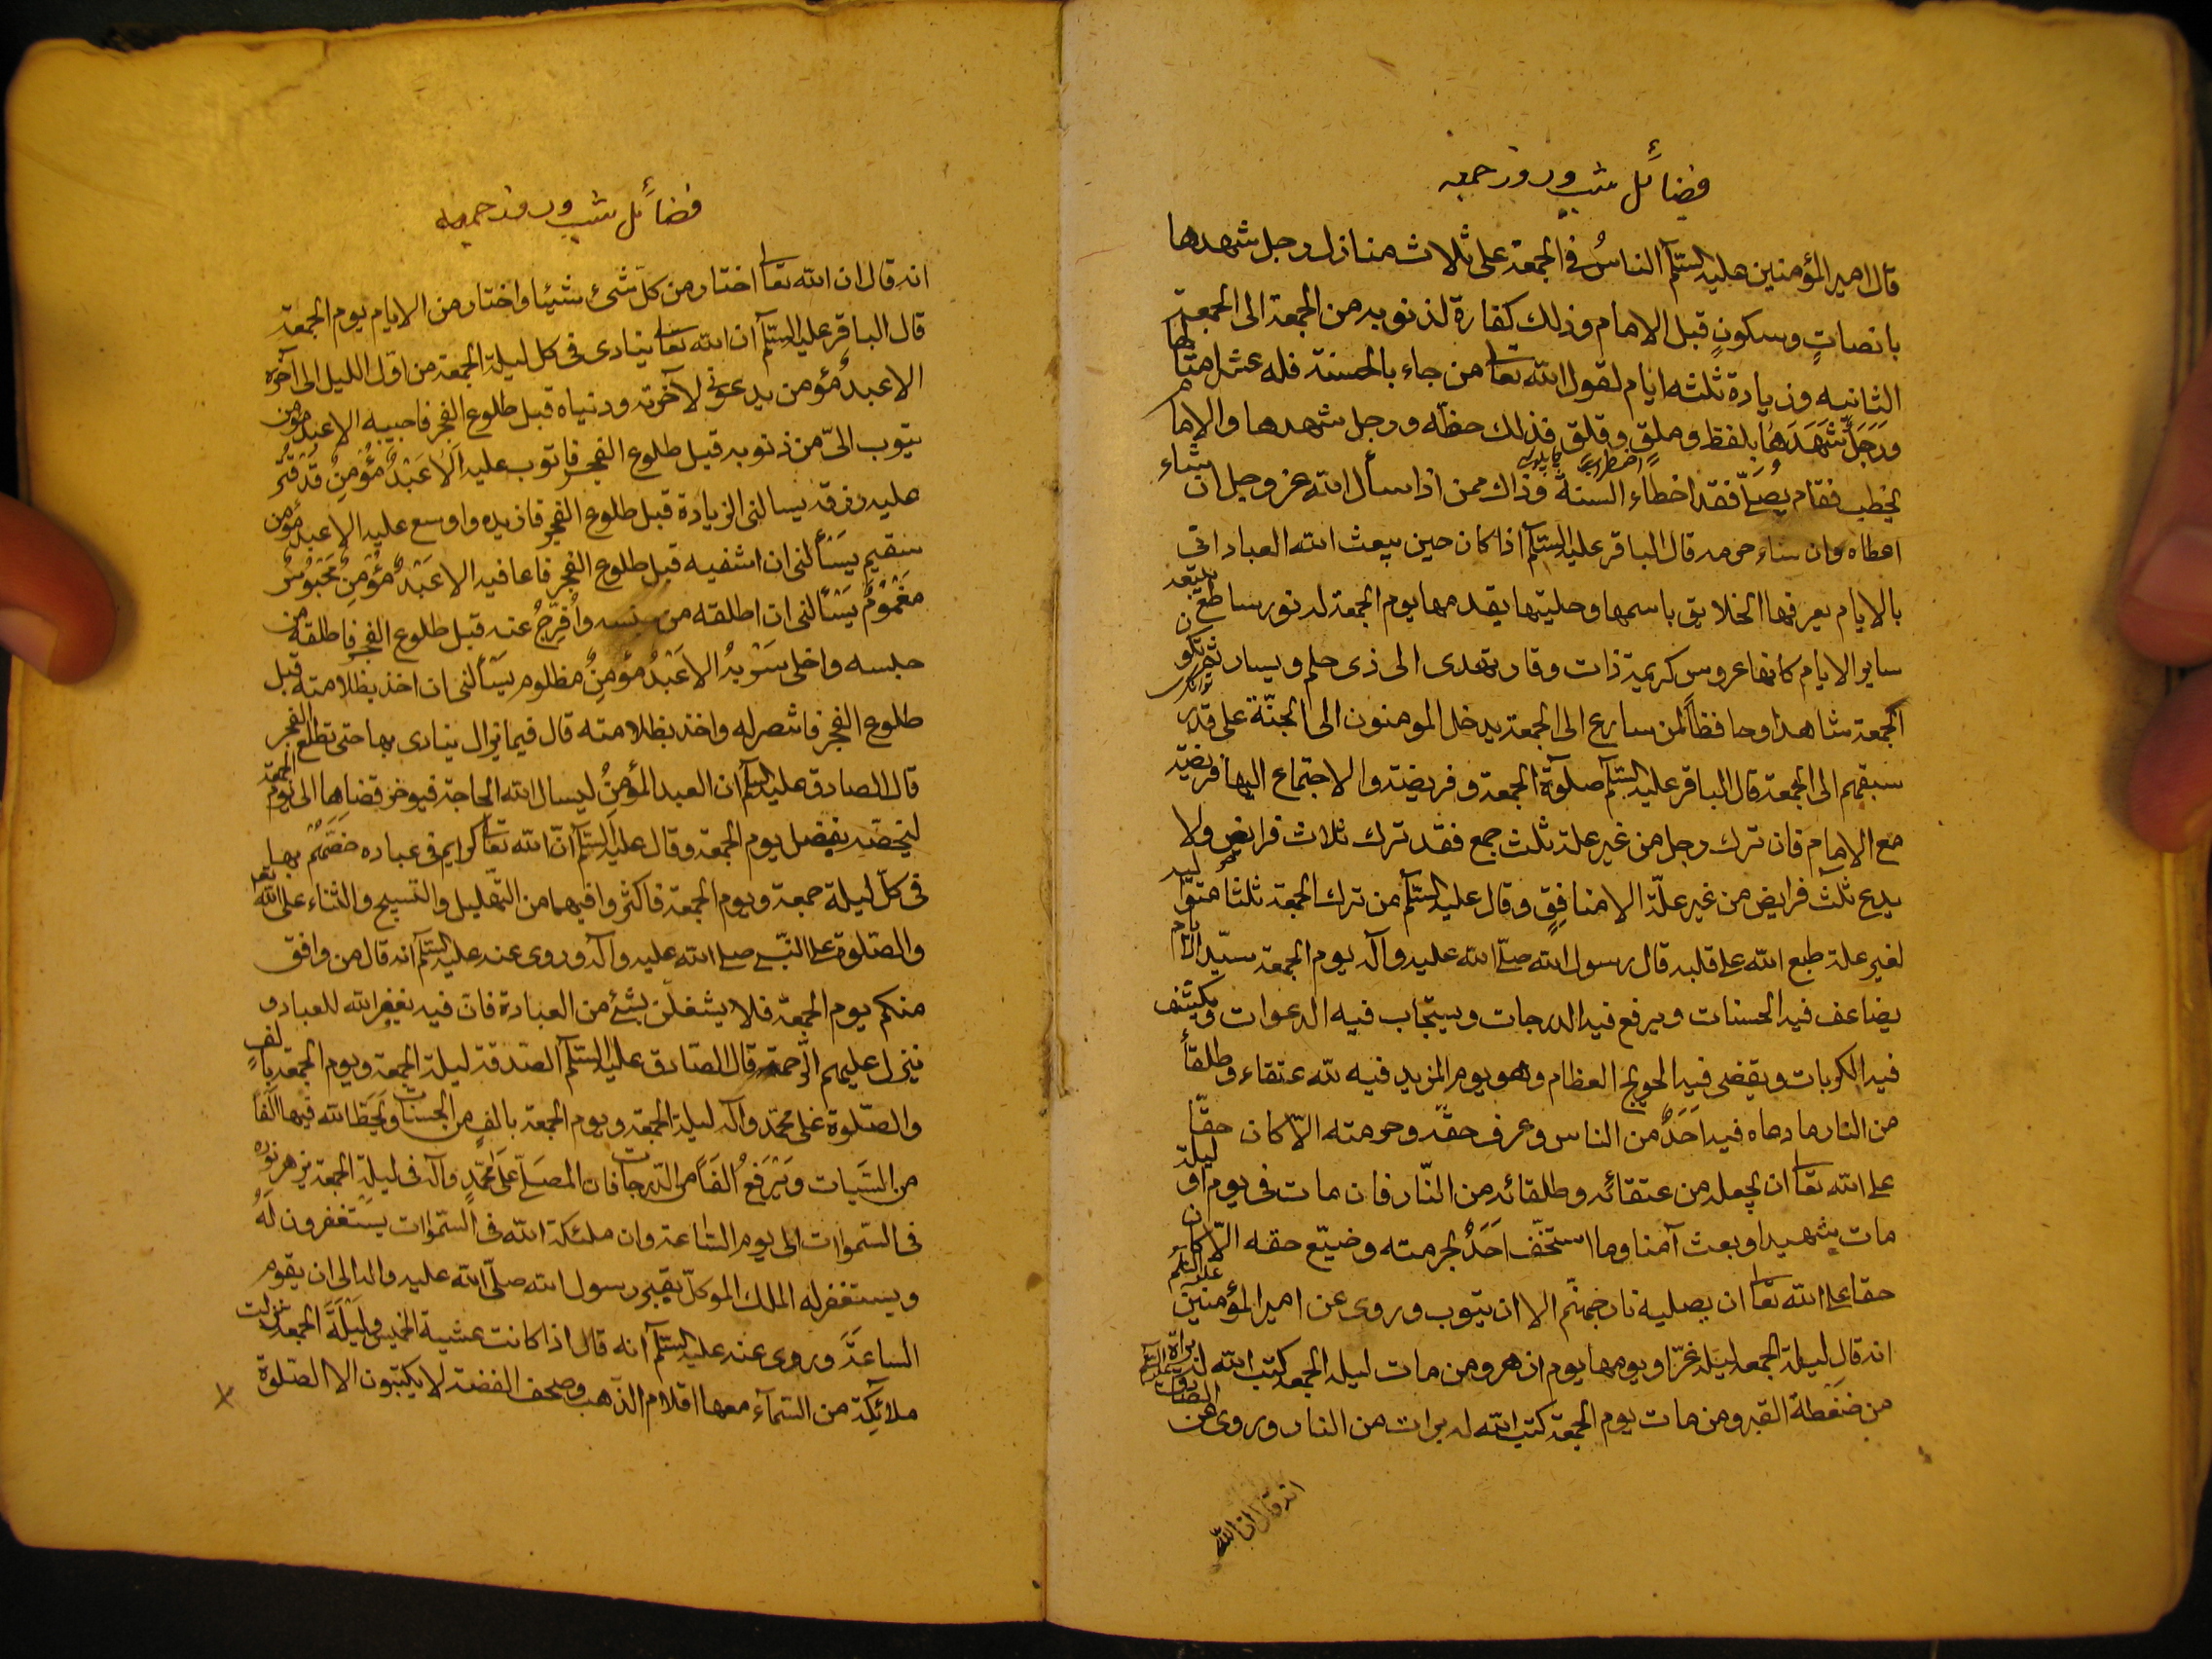 فضائل شب و روز جمعه
قال امير المؤمنين عليه السلم الناسُ فى الجمعة على ثلاث منازل رجل شهدها
بانصاتٍ وسكونٍ قبل الامام وذلك كفارة لذنوبه من الجمعة الى الجمعة
الثانيه وزيادة ثلثه ايام لقول الله تعا من جاء بالحسنة فله عشر امثالها
ورَجلٌ شَهَدَهٰا بلفظ وملقٍ وقلق فذلك حظّه ورجل شهدها والامام
اضطراب چاپلوسى
يخطب فقام يُصَلّ فقد اخطاء السنة وذاك ممن اذا سأل الله عز وجل ان شاء
اعطاه وان شاء حرمه قال الباقر عليه السلم اذا كان حين يبعث الله العباد اتى
بالايام يعرفها الخلايق باسمها وحليتها يقدمها يوم الجمعة له نور ساطع يتبعه
ساير الايام كانها عروس كريمة ذات وقار تهدى الى ذى حلم ويسار ثم تكون
توانكرى
الجمعة شاهدا وحافظاً لمن سارع الى الجمعة يدخل المومنون الى الجنّة على قدر
سبقهم الى الجمعة قال الباقر عليه السلم صلوة الجمعة وفريضة والاجتماع اليها فريضة
مع الامام فان ترك رجل من غير علة ثلث جمع فقد ترك ثلاث فرايض ولا
يدع ثلث فرايض من غير علّة الا منافقٍ وقال عليه السلم من ترك الجمعة ثلثا متواليه
لغير علة طبع الله على قلبه قال رسول الله صلّى الله عليه وآله يوم الجمعة سيّد الايام
يضاعف فيه الحسنات ويرفع فيه الدرجات ويستجاب فيه الدعوات ويكشف
فيه الكربات ويقضى فيه الحوايج العظام وهو يوم المزيد فيه لله عتقاء وطلقاً
من النار مادعاه فيه اَحَدٌ من الناس وعرف حقّه وحرمته الاّ كان حقّا
على الله تعا ان يجعله من عتقائه وطلقائه من النّار فان مات فى يوم او ليلة
مات شهيدا وبعث آمنا وما استخفّ اَحَدٌ بحرمته وضيّع حقه الاّ كان
حقا على الله تعا ان يصليه نار جهنّم الا ان يتوب وروى عن امير المؤمنين عليه السلم
انه قال ليلة الجمعه ليله غرّا ويومها يوم ازهر ومن مات ليله الجمعه كتب الله له براة
من ضَغطة القبر ومن مات يوم الجمعة كتب الله له برات من النار وروى عن الصادق عليه السلم
انه قال ان الله
فضائل شب و روز جمعه
انه قال ان الله تعا اختار من كلّ شئ شيئا واختار من الايام يوم الجمعة
قال الباقر عليه السلم ان الله تعا ينادى فى كل ليلة الجمعة من اوّل الليل الى آخره
الا عبدٌ مؤمن يدعونى لآخرته ودنياه قبل طلوع الفجر فاجيبه الا عبد مومن
يتوب الىّ من ذنوبه قبل طلوع الفجر فاتوب عليه اَلاٰ عَبْدٌ مُؤمِنٌ قَد قتّر
عليه رزقه يسالنى الزيادة قبل طلوع الفجر فازيده واوسع عليه الا عبد مؤمن
سقيم يَسَألنى ان اشفيه قبل طلوع الفجر فاعافيه الا عَبْدٌ مُؤمِنٌ مَحَبُوسٌ
مغَمُوُمٌ يَسْألنى ان اطلقه من وأُفرّجُ عنه قبل طلوع الفجر فاطلقه من
حبسه واخلى سَرْبهُ الا عَبْدٌ مؤمِنٌ مظلوم يَسْألنى ان اخذ بظلامته قبل
طلوع الفجر فانتصر له واخذ بظلامته قال فيما نزال ينادى بها حتى تطلع الفجر
قال الصادق عليه السلم ان العبد المؤمِنُ ليسال الله الحاجة فيوخر قضاها الى يوم الجمعة
ليخصّه بفضل يوم الجمعة وقال عليه السلم انّ الله تعا كرايم فى عباده خصّهم بها
فى كلّ ليلة جمعة ويوم الجمعة فاكثروا فيهما من التّهليل والتسبيح والثناء على الله تعا
والصّلوة على النبّى صلى الله عليه وآله وروى عنه عليه السلم انه قال من وافق
منكم يوم الجمعة فلا يشغلّن بشئ من العبادة فان فيه يغفر الله للعباد و
ينزل عليهم الرّحمة قال الصّادق عليه السلم الصّدقة ليلة الجمعة ويوم الجمعة بالفٍ
والصّلوة على محمّد وآله ليلة الجمعة ويوم الجمعة بالفٍ من الحسنات ويَحُطّ الله فيها الفاً
من السّيات ويَرَفعُ الفَاً من الدّرجات فان المصَلّى عَلَى مُحمّدٍ وآله فى ليلةِ الجمعة يزهر نوره
فى السّموات الى يوم السّاعة وان ملئكة الله فى السّموات يستغفرون لَهُ
ويستغفر له الملك الموكّل بقبر رسول الله صلّى الله عليه واله الى ان يقوم
الساعَةَ وروى عنه عليه السلم انه قال اذا كانت عشية الخميس وليْلَةَ الجمعة نزلت
ملائِكَة من السّمآء معها اقلام الذّهب وصحف الفضة لا يكتبون الا الصّلوة